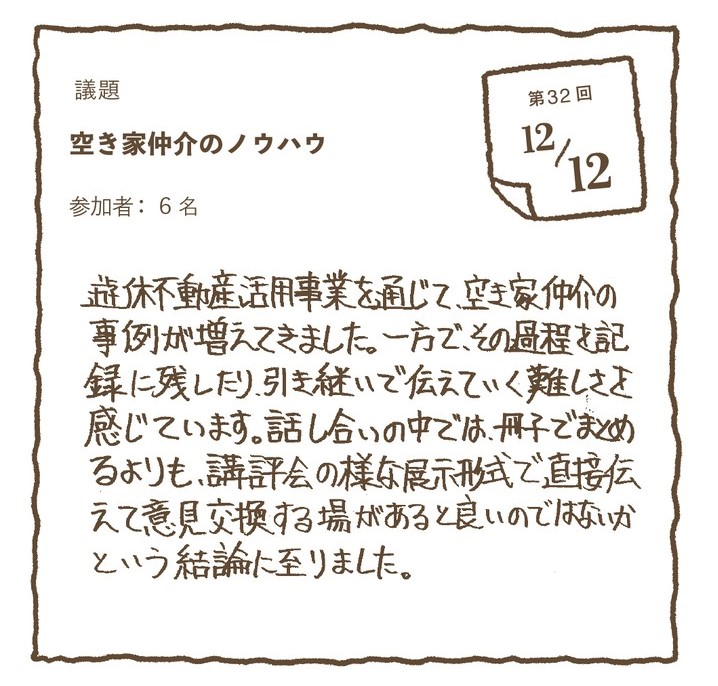 議題
第32回
12/12
空き家仲介のノウハウ
参加者：6名
遊休不動産活用事業を通じて、空き家仲介の
事例が増えてきました。一方で、その過程を記
録に残したり、引き継いで伝えていく難しさを
感じています。話し合いの中では、冊子でまとめ
るよりも、講評会の様な展示形式で直接伝
えて意見交換する場があると良いのではないか
という結論に至りました。